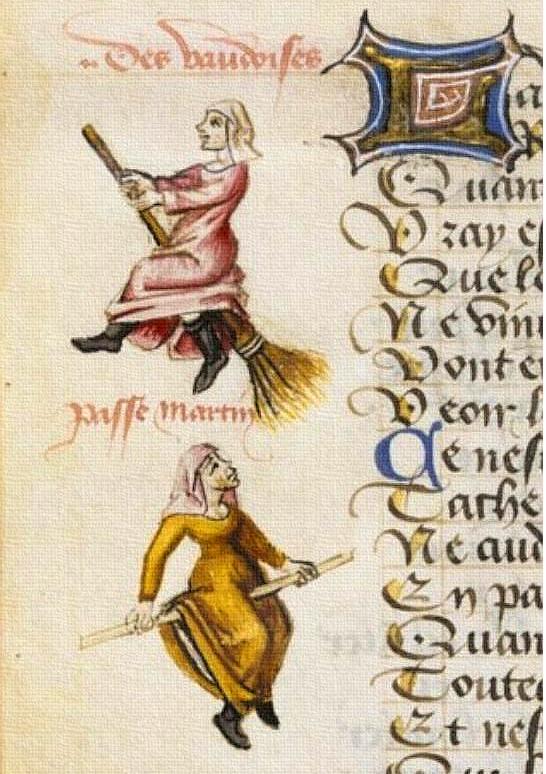 Des vaudoises
passe martin
Quan
Vray es
Que le
Ne vin
Vont e
Veoir l
Ce nest
Tache
Ne aud
En pa
Quan
Toute
Et nes